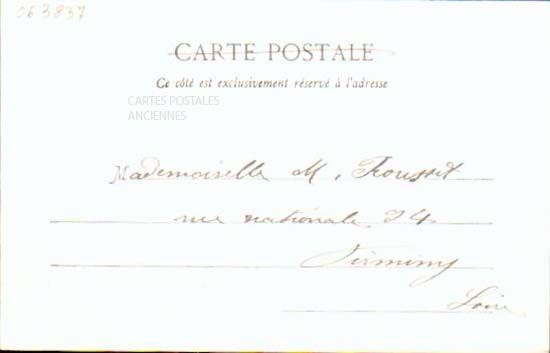 063837
CARTE POSTALE
Ce côté est exclusivement réservé à l'adresse
CARTES POSTALES
ANCIENNES
Mademoiselle M. Rousset
rue nationale 24
Firminy
Loire